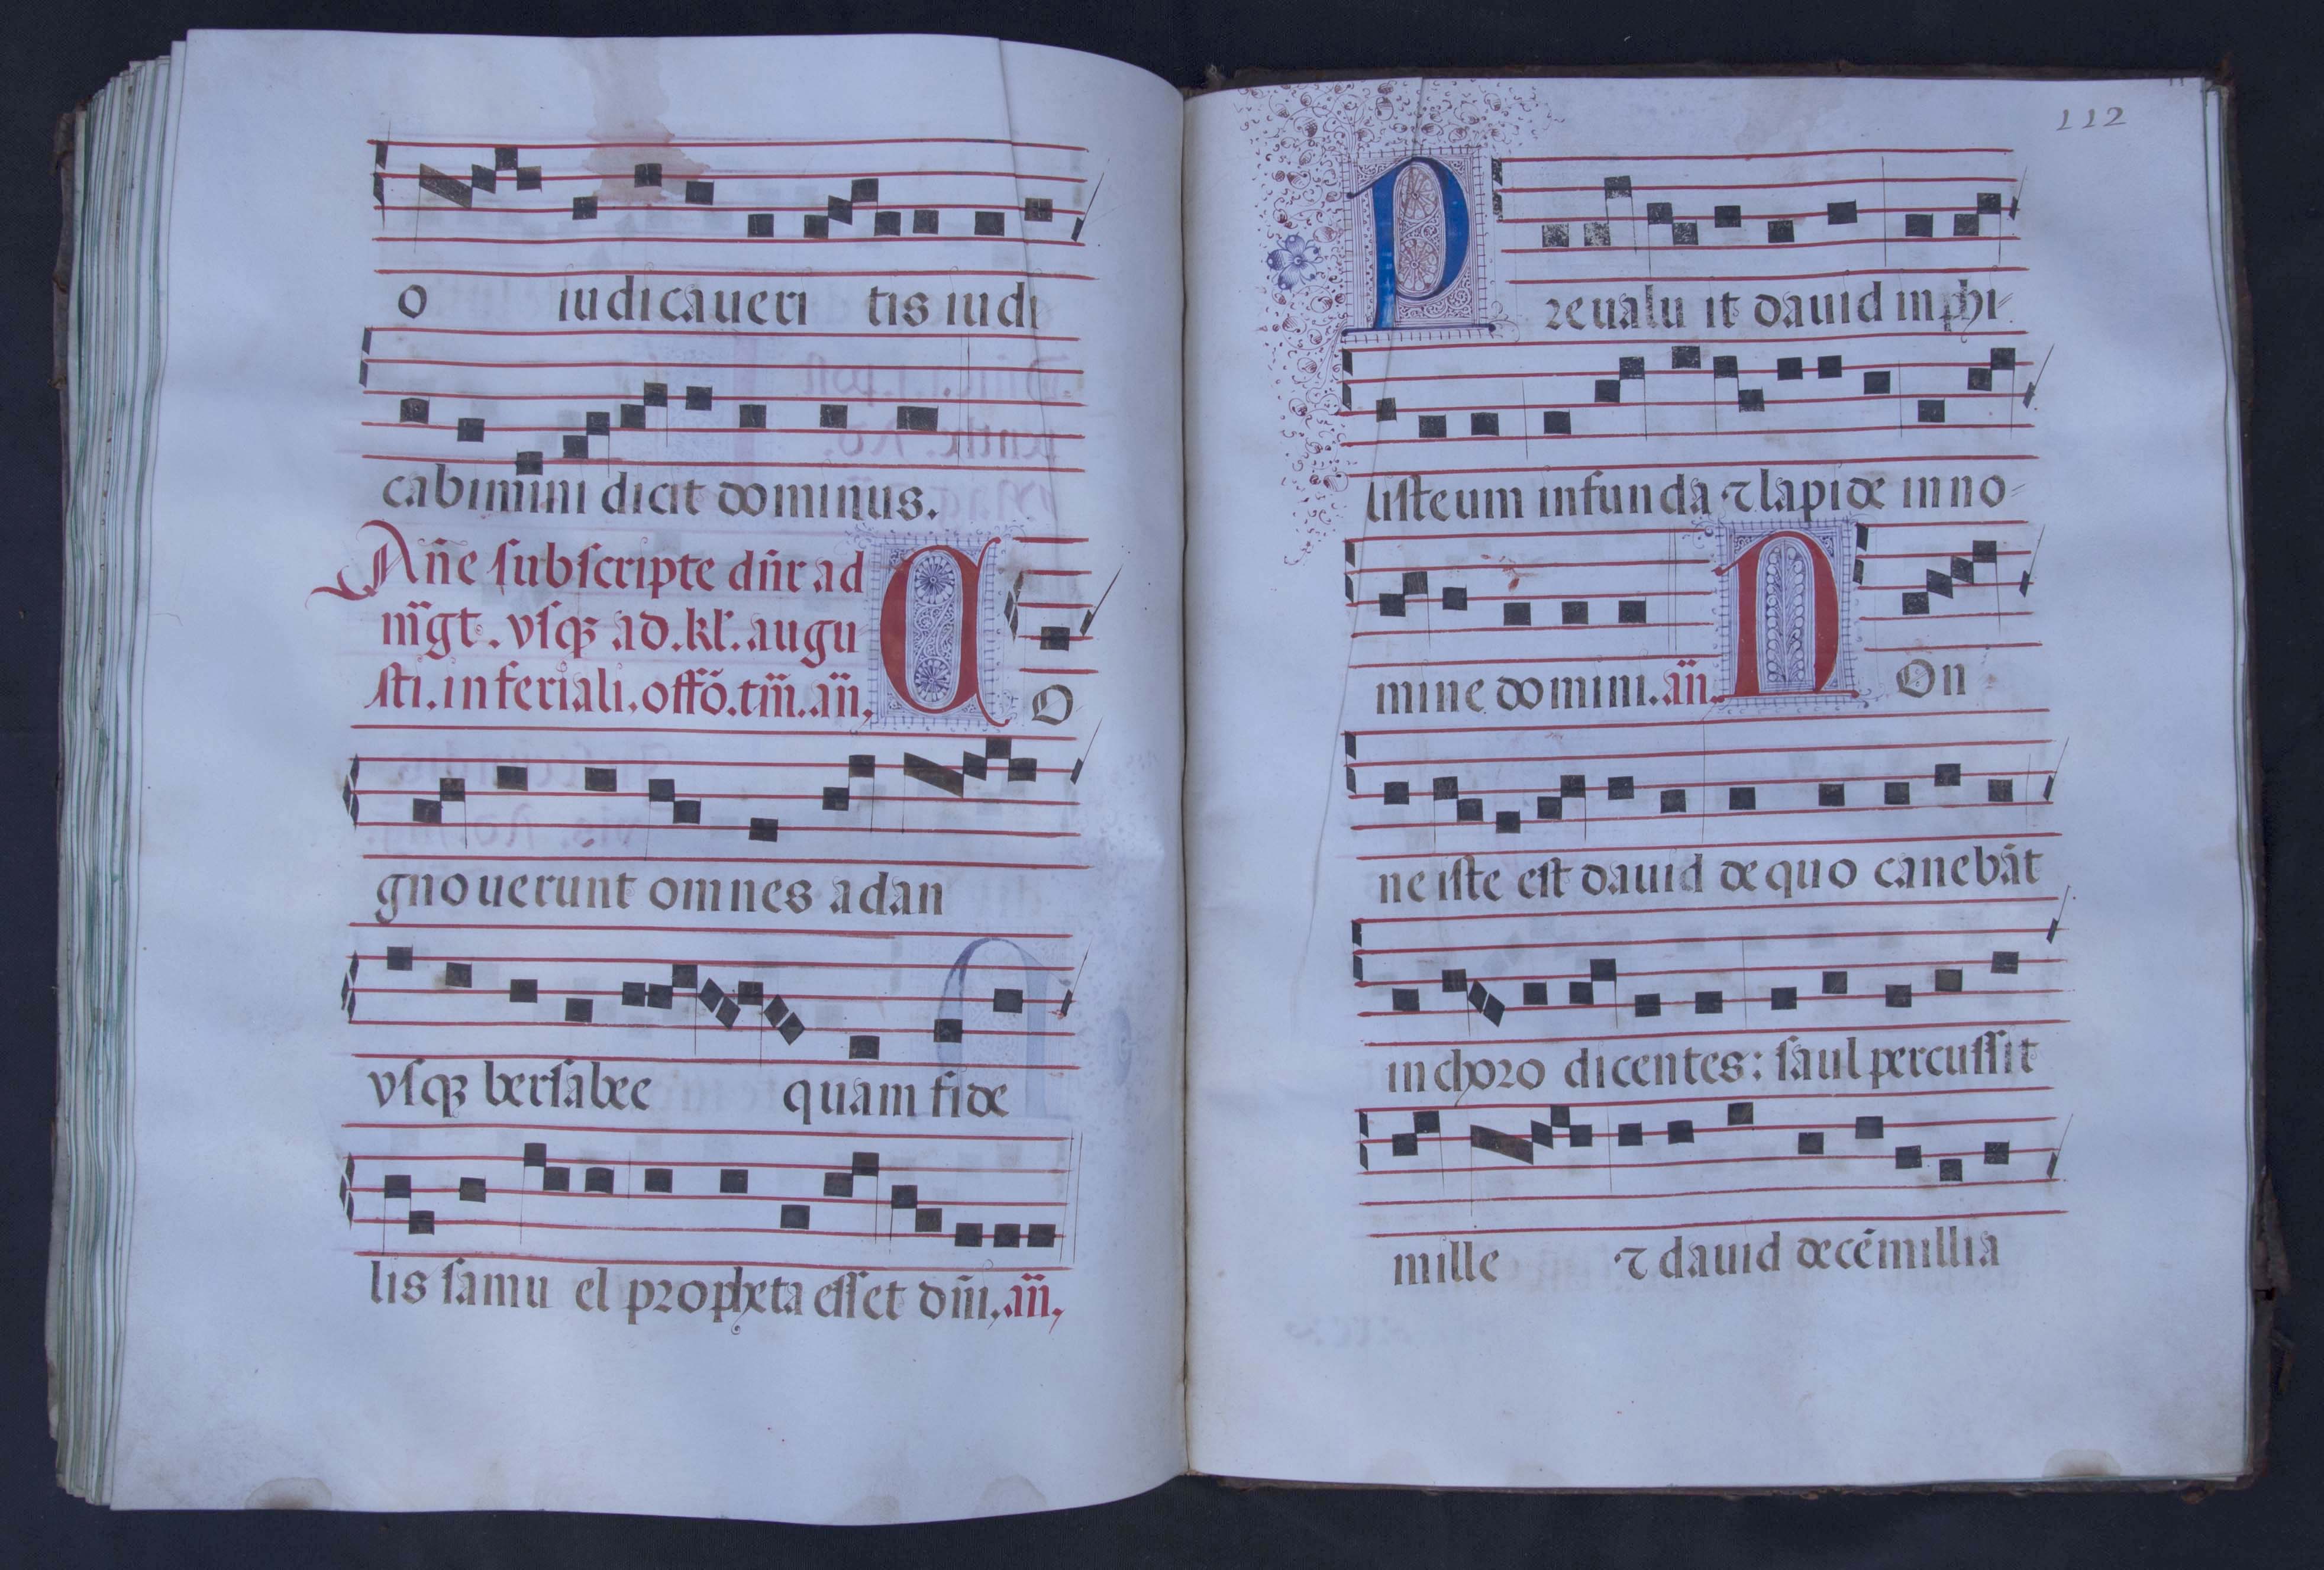 o iudicaueri tis iudi
cabimini dicit dominus.
An̄e subscripte dn̄r ad
m̄gt. vsqꝫ ad. kl'. augu
sti. in feriali. offō. tm̄. an̄,
C O
gnouerunt omnes a dan
vsqꝫ bersabee quam fide
lis samu el propheta esset dn̄i, an̄,
112
P reualu it dauid in phi-
listeum in funda ⁊ lapide in no-
mine domini. an̄. N On
ne iste est dauid de quo canebāt
in choro dicentes: saul percussit
mille ⁊ dauid decē millia